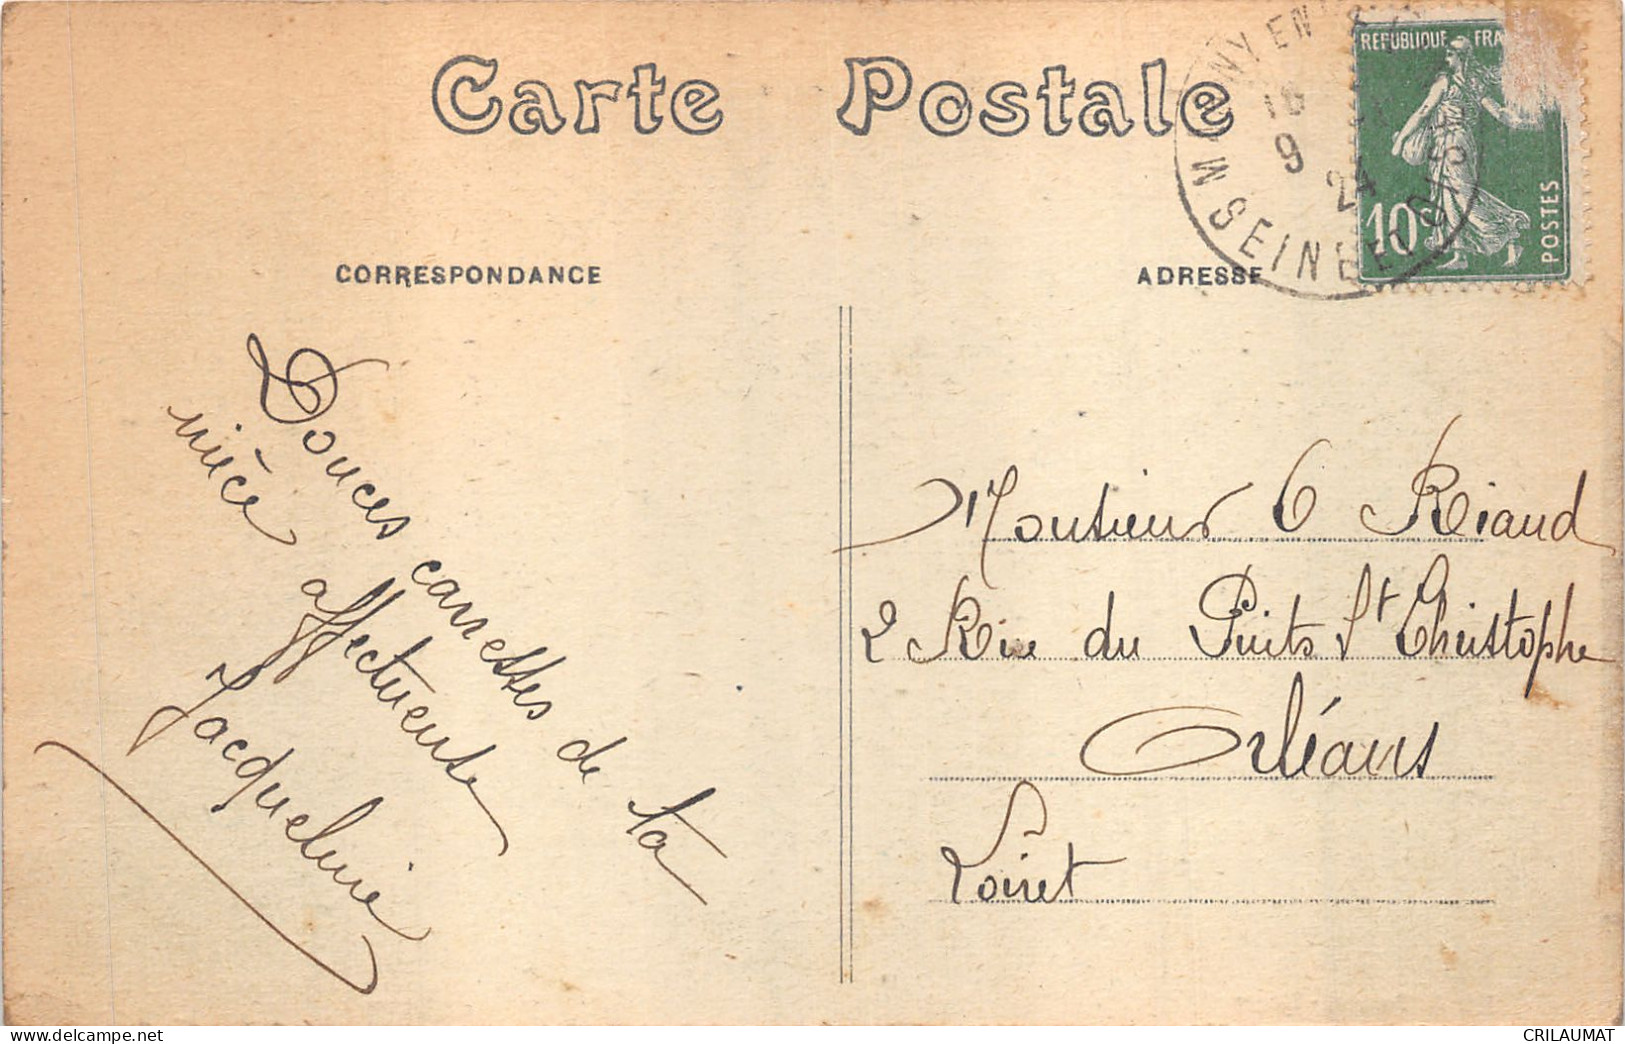 Carte Postale
RÉPUBLIQUE FRA
10c
POSTES
NY EN
16
9
24
SEINE ET OISE
CORRESPONDANCE
ADRESSE
Douces carresses de ta
nièce affectueuse
Jacqueline
Monsieur G Riaud
2 Rue du Puits St Christophe
Orléans
Loiret
https://www.delcampe.net
CRILAUMAT